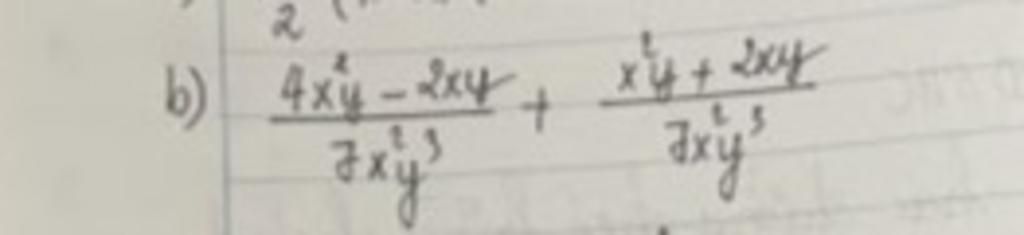 2
b) \frac{4x^2y - 2xy}{7x^2y^3} + \frac{x^2y + 2xy}{7x^2y^3}